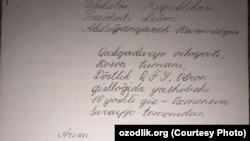 Uzbekiston Respublikasi
Prezidenti Islom
Abdug'aniyevich Karimovga
Qashqadaryo viloyati,
Koson tumani,
Do'stlik QFY, Obron
qishlog'ida yashovchi
10 yoshli qiz - Usmonova
Surayyo tomonidan
Ariza
ozodlik.org (Courtesy Photo)